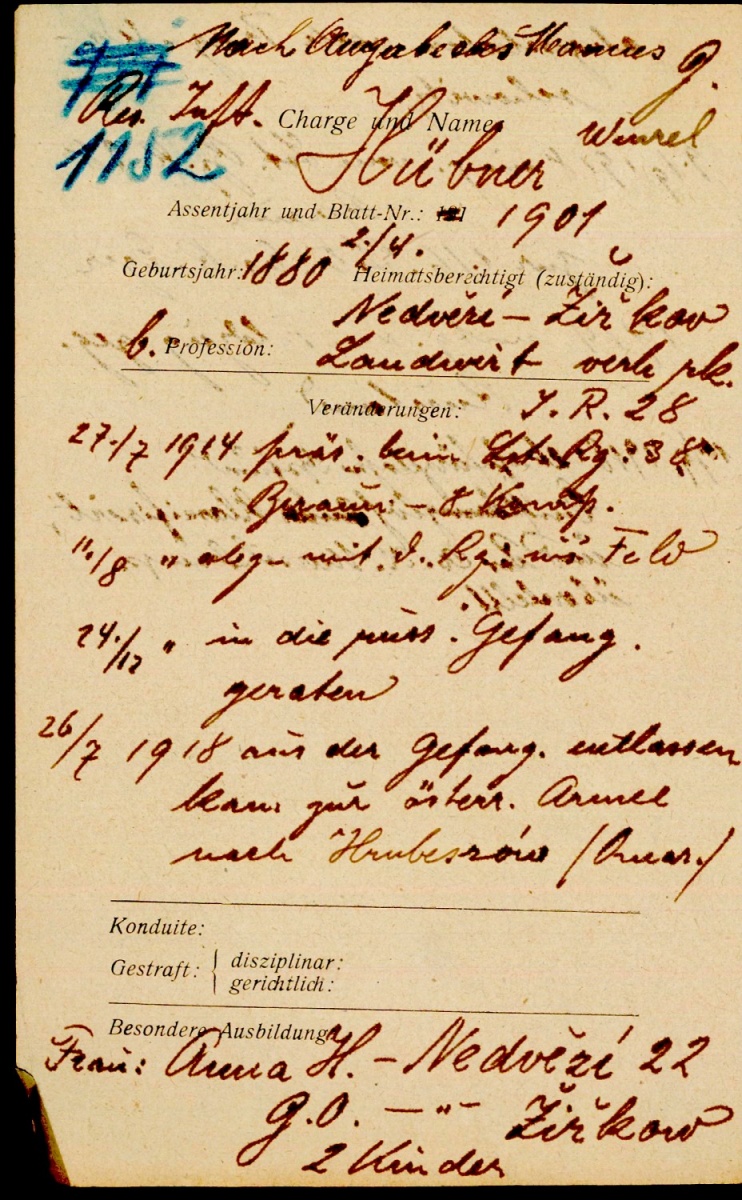 Nach Angabe des Mannes
G.
Res. Inft. Charge und Name:
1152 Hübner Wenzel
Assentjahr und Blatt-Nr.: 1901
2./4.
Geburtsjahr: 1880 Heimatsberechtigt (zuständig):
Nedvězí – Žižkov
b. Profession: Landwirt verh rk.
Veränderungen: I. R. 28
27./7 1914 präs. beim Lst. Rg. 38
Beraun – 8 Komp.
11./8 " abg. mit d. Rg. ins Feld
24./12 " in die russ. Gefang.
geraten
26/7 1918 aus der Gefang. entlassen
kam zur österr. Armee
nach Hrubeszów
Konduite:
Gestraft: disziplinar:
gerichtlich:
Besondere Ausbildung:
Frau: Anna H. – Nedvězí 22
G.O. — " — Žižkow
2 Kinder